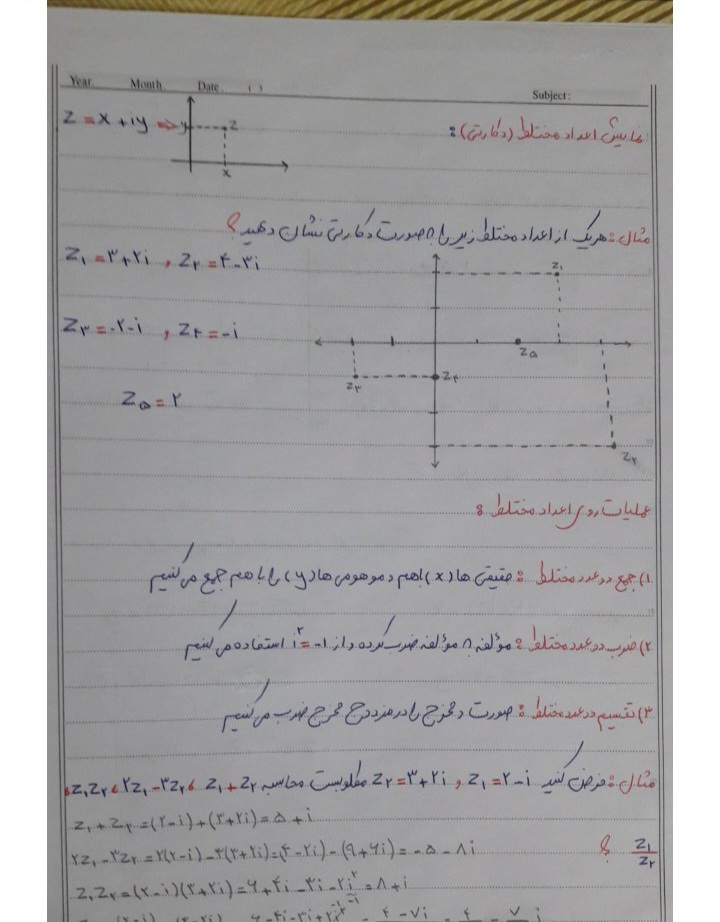 Year. Month. Date. ( ) Subject:
نمایش اعداد مختلط (دکارتی):
z = x + iy ⇒ y z x
مثال: هریک از اعداد مختلط زیر را به صورت دکارتی نشان دهید؟
z₁ = ۳+۲i , z₂ = ۴-۳i
z₃ = -۲-i , z₄ = -i
z₅ = ۲
z₁
z₅
z₃ z₄
z₂
عملیات روی اعداد مختلط:
۱) جمع دو عدد مختلط: حقیقی ها (x) باهم و موهومی ها (y) را با هم جمع می کنیم
۲) ضرب دو عدد مختلط: مؤلفه به مؤلفه ضرب کرده و از i² = -۱ استفاده می کنیم
۳) تقسیم دو عدد مختلط: صورت و مخرج را در مزدوج مخرج ضرب می کنیم
مثال: فرض کنید z₁ = ۲-i و z₂ = ۳+۲i مطلوبست محاسبه z₁+z₂ ، ۲z₁-۳z₂ ، z₁z₂ ،
z₁/z₂ ؟
z₁+z₂ = (۲-i)+(۳+۲i) = ۵+i
۲z₁-۳z₂ = ۲(۲-i)-۳(۳+۲i) = (۴-۲i)-(۹+۶i) = -۵-۸i
z₁z₂ = (۲-i)(۳+۲i) = ۶+۴i-۳i-۲i² = ۸+i